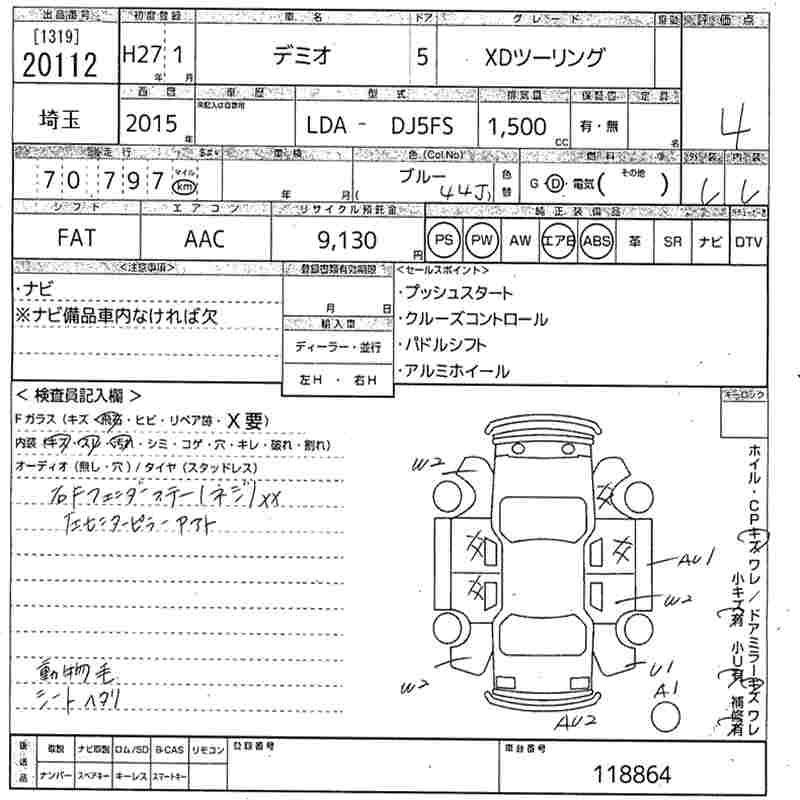 出品番号 初度登録 車名 ドア グレード 評価点
[1319]
20112 H27年 1月 デミオ 5 XDツーリング
西暦 車歴 型式 排気量 保証書 定員
埼玉 2015年 LDA - DJ5FS 1,500cc 有・無 名 4
走行 車検 色(Col.No) 燃料 外装 内装
70,797 マイル km 年 月 ブルー 44J 色替 G・D・電気( その他 )
シフト エアコン リサイクル預託金 純正装備品
FAT AAC 9,130円 PS PW AW エアB ABS 革 SR ナビ DTV
<注意事項> 登録書類有効期限 <セールスポイント>
・ナビ 月 日 ・プッシュスタート
※ナビ備品車内なければ欠 輸入車 ・クルーズコントロール
ディーラー・並行 ・パドルシフト
左H ・ 右H ・アルミホイール
<検査員記入欄> キーロック
Fガラス(キズ・飛石・ヒビ・リペア跡・X要)
内装(キズ・スレ・汚れ・シミ・コゲ・穴・キレ・破れ・割れ)
オーディオ(無し・穴)/タイヤ(スタッドレス)
右Fフェンダーステー(ネジ)XX
左センターピラーアオト
動物毛
シートヘタリ
W2
AU1
W2
W2
U1
A1
AU2
ホイル・CPキズワレ/ドアミラーキズワレ
小キズ有 小U有 補修有
後送品 取説 ナビ取説 ロム/SD B-CAS リモコン 登録番号 車台番号
ナンバー スペアキー キーレス スマートキー 118864